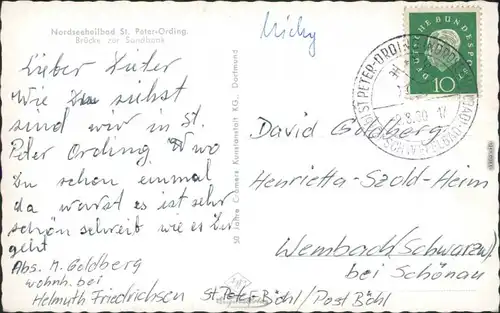 Nordseeheilbad St. Peter-Ording.
Brücke zur Sandbank
Michy
Lieber Dieter
Wie Du siehst
sind wir in St.
Peter Ording. wo
Du schon einmal
da warst es ist sehr
schön schreib wie es Dir
geht
Abs. M. Goldberg
wohnh. bei
Helmuth Friedrichsen St Peter Böhl/Post Böhl
50 Jahre Cramers Kunstanstalt KG., Dortmund
DEUTSCHE BUNDESPOST
10
ST. PETER-ORDING
.8.60-17
David Goldberg
Henrietta-Szold-Heim
Wembach (Schwarzw.)
bei Schönau